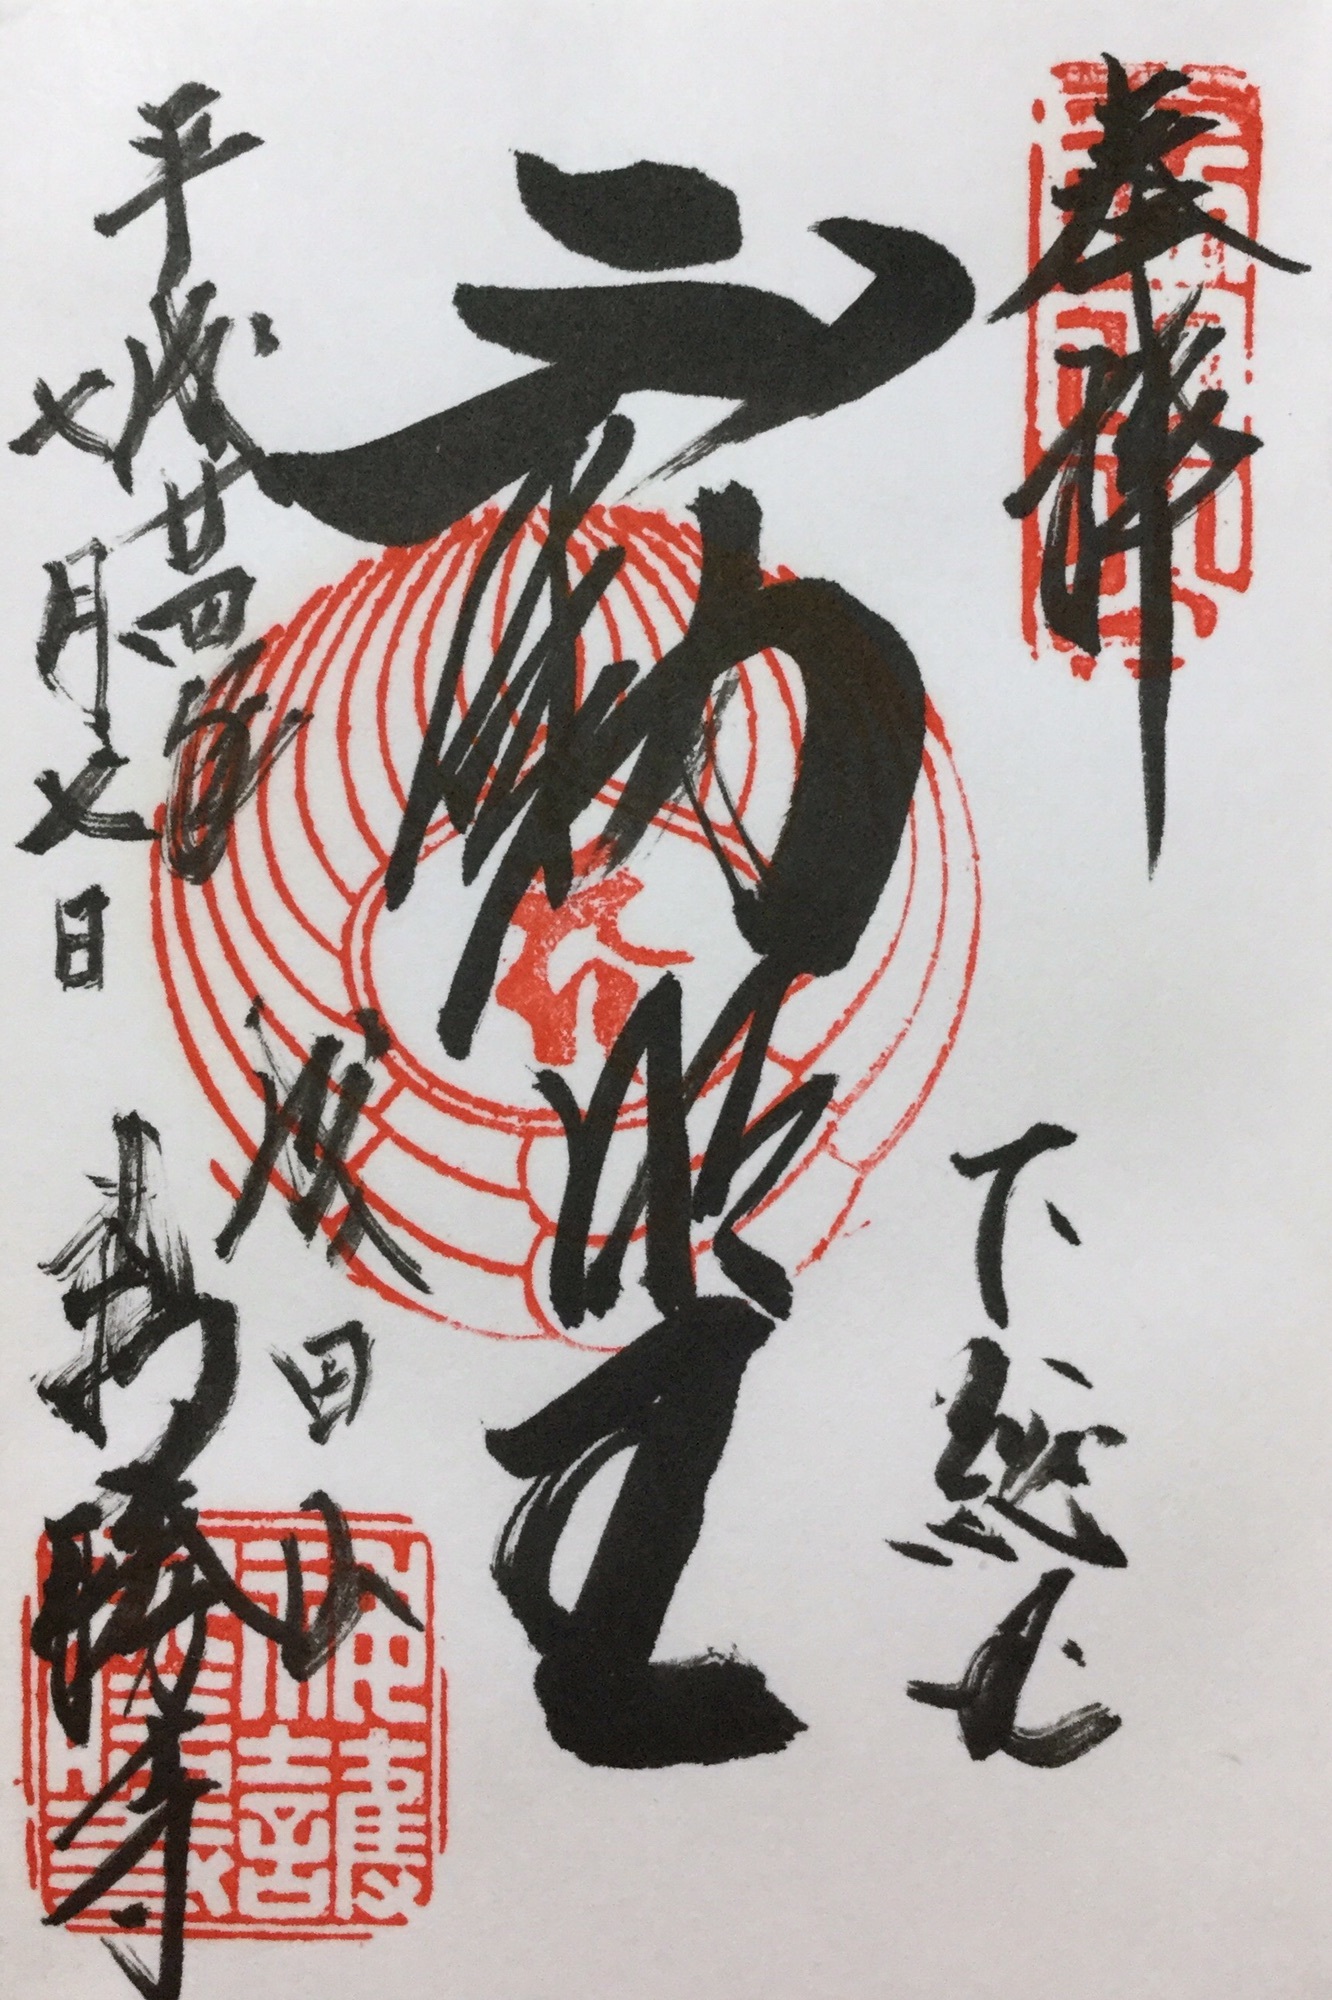 奉拝
下総
不動明王
平成廿四年
七月七日
成田山
新勝寺